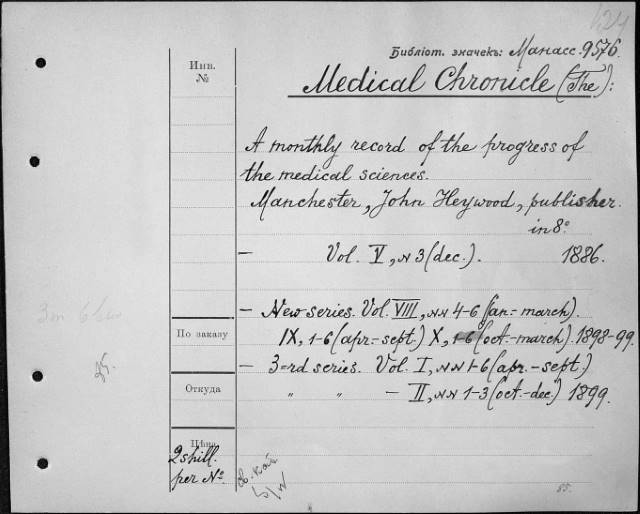 Библіот. значекъ: Манасс. 9576.
Инв.
№
Medical Chronicle (The):
A monthly record of the progress of
the medical sciences.
Manchester, John Heywood, publisher.
in 8º.
— Vol. V, N 3 (dec.). 1886.
— New series. Vol. VIII, NN 4-6 (jan.-march).
IX, 1-6 (apr.-sept.) X, 1-6 (oct.-march). 1898-99.
— 3=rd series. Vol. I, NN 1-6 (apr.-sept.)
" " — II, NN 1-3 (oct.-dec.) 1899.
По заказу
Откуда
Цѣна
2 shill.
per №.
85.